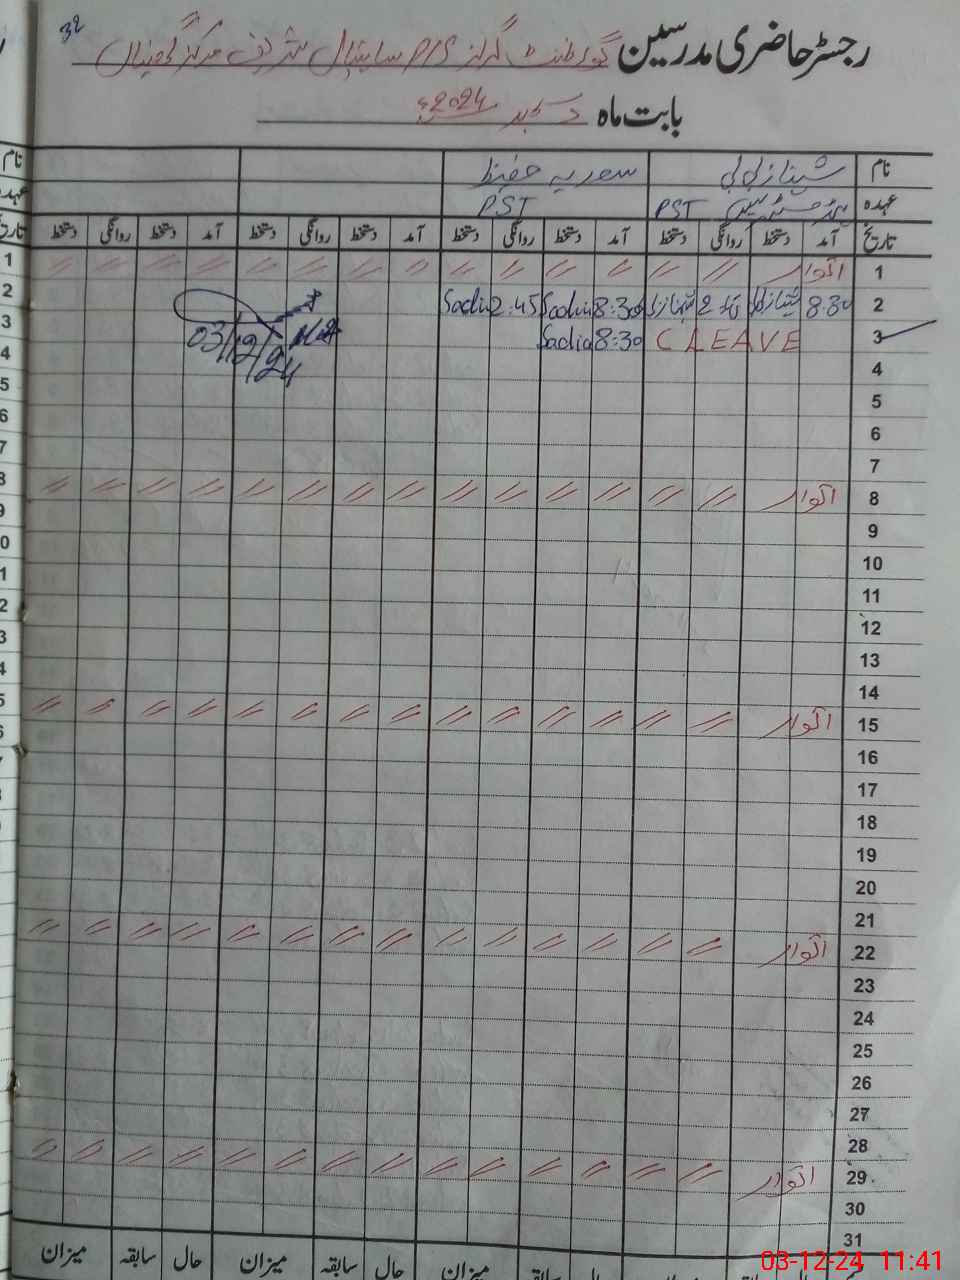 32
رجسٹر حاضری مدرسین گورنمنٹ گرلز P/S شریف مرکز
بابت ماہ دسمبر 2024ء
نام شہناز بی بی سعدیہ حفیظ نام
عہدہ ہیڈ مسٹریس PST PST عہدہ
تاریخ آمد دستخط روانگی دستخط آمد دستخط روانگی دستخط آمد دستخط روانگی دستخط آمد دستخط روانگی دستخط تاریخ
1 اتوار // // // // // // // // // // // // // // 1
2 8:30 شہناز بی بی 2 شہناز بی بی 8:30 Sadia 2:45 Sadia 2
3 C LEAVE 8:30 Sadia 03/12/24 3
4 4
5 5
6 6
7 7
8 اتوار // // // // // // // // // // // // // // 8
9 9
10 0
11 1
12 2
13 3
14 4
15 اتوار // // // // // // // // // // // // // // 5
16 6
17
18
19
20
21
22 اتوار // // // // // // // // // // // // // //
23
24
25
26
27
28
29 اتوار // // // // // // // // // // // // // //
30
31
حال سابقہ میزان حال سابقہ میزان حال سابقہ میزان
03-12-24 11:41